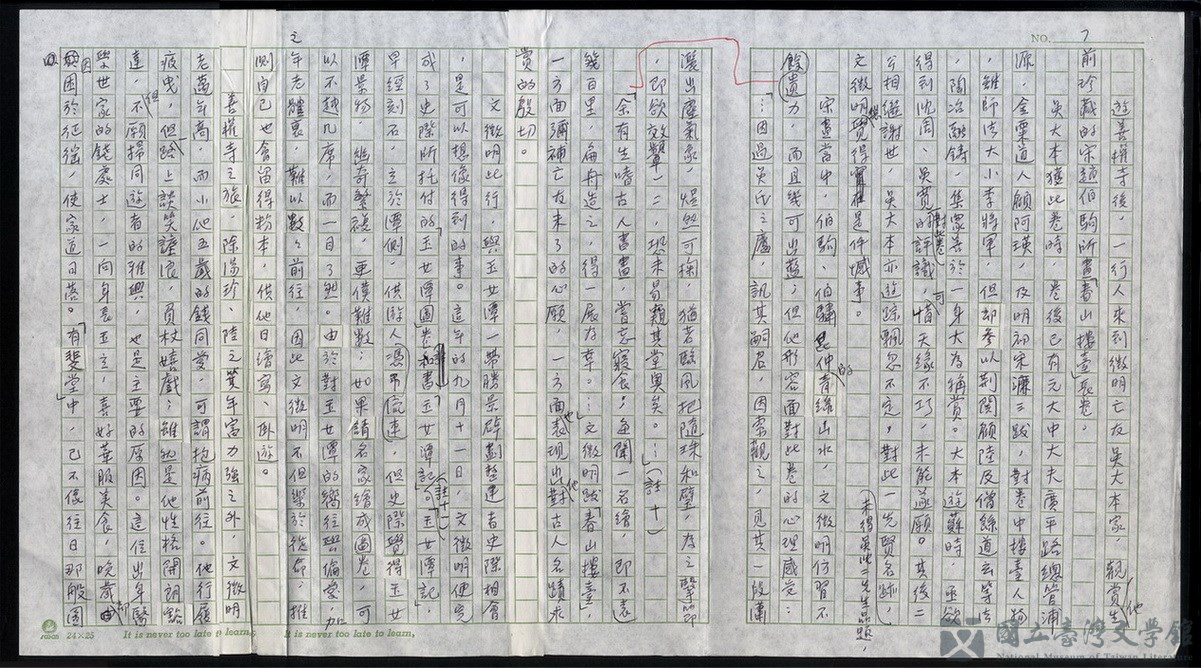 NO. 7
遊善權寺後,一行人來到徵明亡友吳大本家,觀賞他生
前珍藏的宋趙伯駒所畫「春山樓臺」長卷。
吳大本獲此卷時,卷後已有元大中大夫廣平路總管浦
源,金粟道人顧阿瑛,及明初宋濂三跋,對卷中樓臺人物
,雖師法大小李將軍,但却參以荊關顧陸及僧繇道玄等法
,陶冶融鑄,集眾善於一身大為稱賞。大本遊蘇時,亟欲
得到沈周、吳寬對此卷的評識,可惜天緣不巧,未能遂願。其後二
公相繼謝世,吳大本亦遊踪飄忽不定,對此一先賢名跡,
未得吳沈二先生品題,
文徵明總覺得是件憾事。
宋畫當中,伯駒、伯驌的青綠山水,文徵明仿習不
餘遺力,而且幾可出藍;但他形容面對此卷的心理感受:
「…因過吳氏之廬,訊其嗣君,因索觀之,見其一段瀟
灑出塵氣象,煜然可掬,猶者臨風把隨珠和璧,為之擊節
,即欲效顰一二,恐未易窺其堂奧矣。…」(註十)
「余有生嗜古人書畫,嘗忘寢食。每聞一名繪,即不遠
幾百里,扁舟造之,得一展為幸。…」文徵明跋「春山樓臺」,
一方面彌補亡友未了的心願,一方面他表現出他對古人名蹟求
賞的殷切。
文徵明此行,與玉女潭一帶勝景闢劃整建者史際相會
,是可以想像得到的事。這年的九月十一日,文徵明便完
成了史際所托付的「玉女潭圖」卷和書「玉女潭記」(註十一)。「玉女潭記」,
早經刻石,立於潭側,供遊人憑弔流連,但史際覺得玉女
潭景物,幽奇繁複,更僕難數;如果請名家繪成圖卷,可
以不越几席,而一目了然。由於對玉女潭的嚮往與偏愛,加
之年老體衰,難以數數前往,因此文徵明不但樂於從命,推
測自己也會留得粉本,供他日繪寫、臥遊。
善權寺之旅,除湯珍、陸之箕年富力強之外,文徵明
老邁年高,而小他五歲的錢同愛,可謂抱病前往。他行履
疲曳,但路上談笑謔浪,負杖嬉戲;雖然是他性格開朗豁
達,但不願掃同遊者的雅興,也是主要的原因。這位出身醫
學世家的錢處士,一向身長玉立,喜好華服美食,晚歲却
因困於征徭,使家道日落。「有斐堂」中,已不像往日那般圖
24×25
It is never too late to learn,
It is never too late to learn,
國立臺灣文學館
National Museum of Taiwan Literature